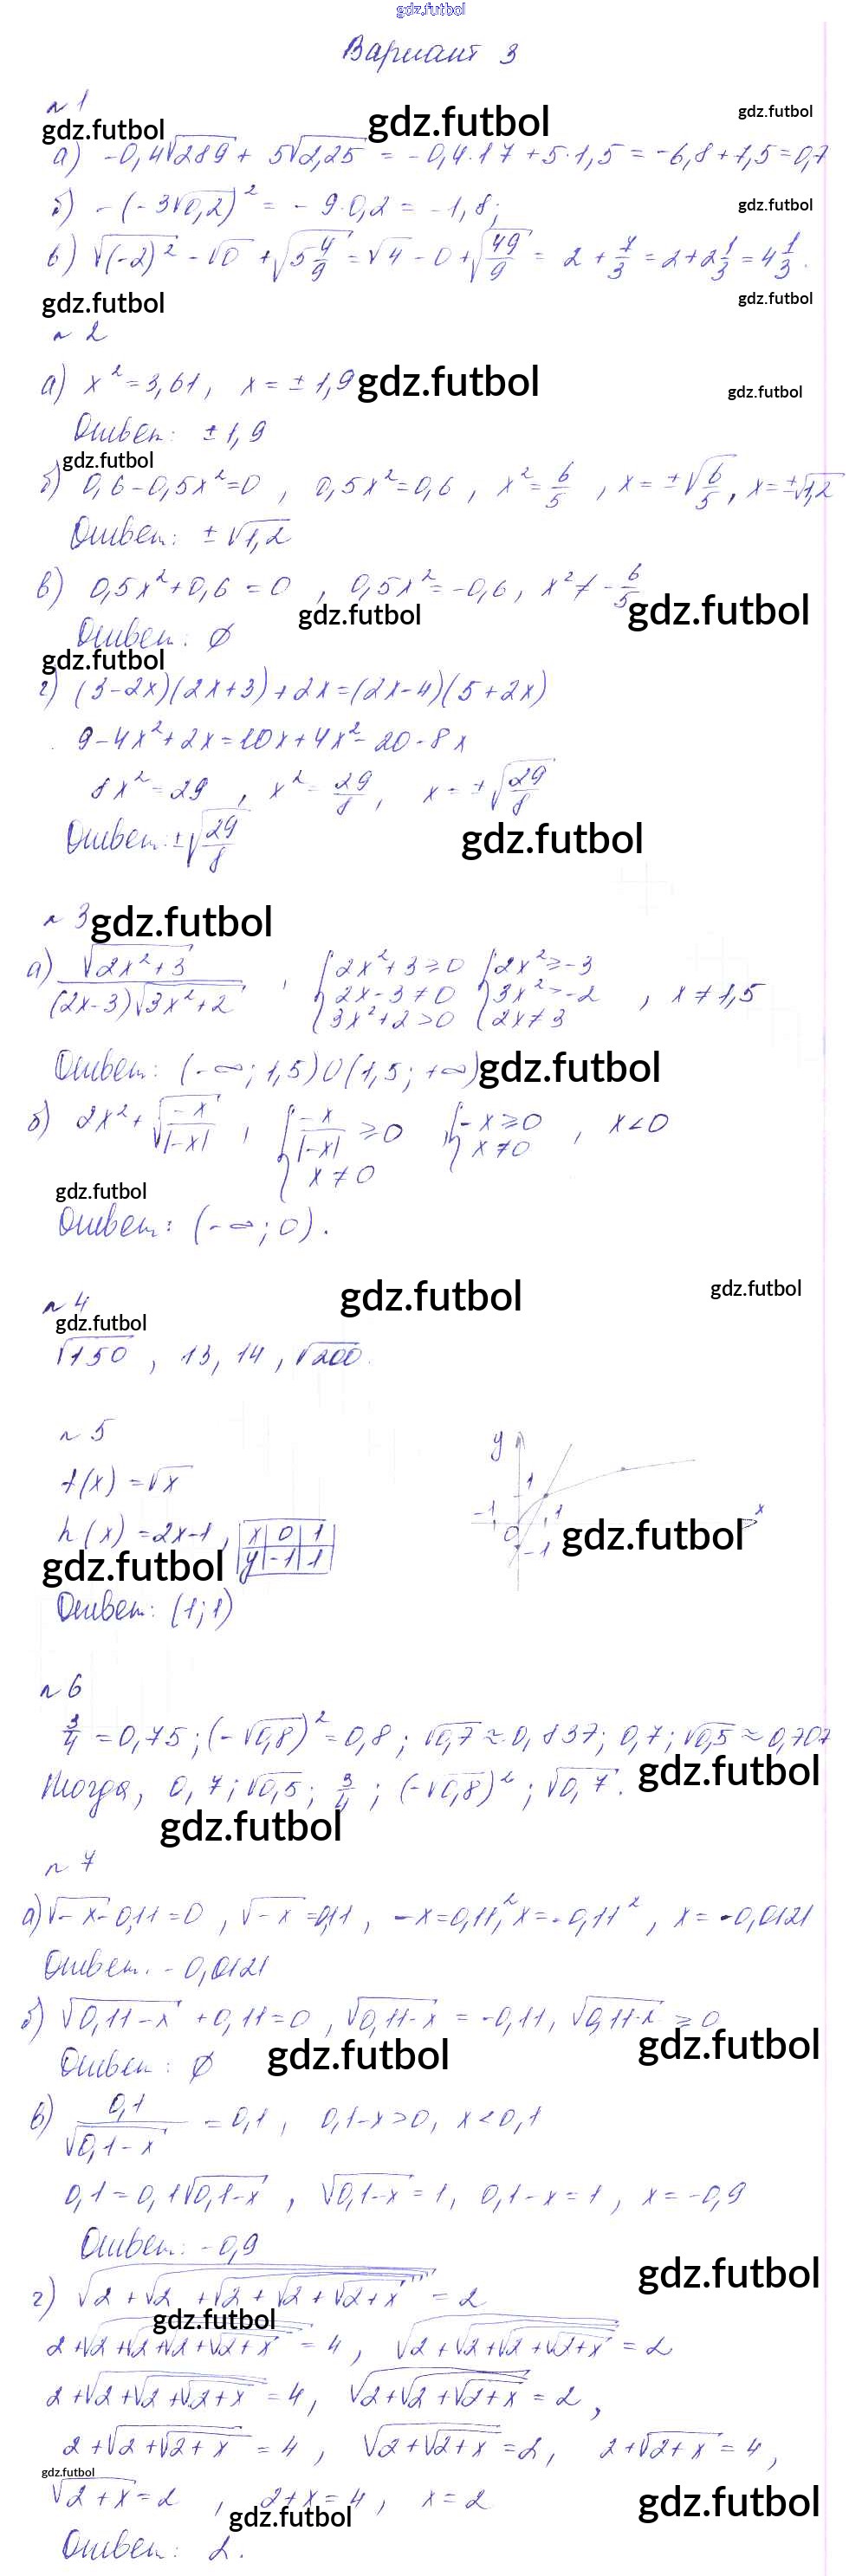 gdz.futbol
Вариант 3
n 1
gdz.futbol gdz.futbol gdz.futbol
а) -0,4√289 + 5√2,25 = -0,4·17 + 5·1,5 = -6,8 + 7,5 = 0,7
б) -(-3√0,2)² = -9·0,2 = -1,8;
gdz.futbol
в) √(-2)² - √0 + √5 4/9 = √4 - 0 + √49/9 = 2 + 7/3 = 2 + 2 1/3 = 4 1/3.
gdz.futbol gdz.futbol
n 2
а) x² = 3,61, x = ± 1,9
gdz.futbol gdz.futbol
Ответ: ± 1,9
gdz.futbol
б) 0,6 - 0,5x² = 0, 0,5x² = 0,6, x² = 6/5, x = ±√6/5, x = ±√1,2
Ответ: ± √1,2
в) 0,5x² + 0,6 = 0, 0,5x² = -0,6, x² ≠ -6/5
gdz.futbol gdz.futbol
Ответ: ∅
gdz.futbol
г) (3-2x)(2x+3)+2x=(2x-4)(5+2x)
9-4x²+2x=10x+4x²-20-8x
8x² = 29, x² = 29/8, x = ±√29/8
Ответ: ±√29/8
gdz.futbol
n 3
gdz.futbol
а) √2x²+3 / (2x-3)√3x²+2, { 2x²+3 ≥ 0 { 2x² ≥ -3
2x-3 ≠ 0 3x² > -2, x ≠ 1,5
3x²+2 > 0 2x ≠ 3
Ответ: (-∞; 1,5) ∪ (1,5; +∞)
gdz.futbol
б) 2x² + √-x/|-x|, { -x/|-x| ≥ 0 { -x ≥ 0, x < 0
x ≠ 0 x ≠ 0
gdz.futbol
Ответ: (-∞; 0).
gdz.futbol gdz.futbol
n 4
gdz.futbol
√150, 13, 14, √200.
n 5
f(x) = √x
h(x) = 2x-1, x 0 1
y -1 1
y 1 -1 0 1 x -1
gdz.futbol gdz.futbol
Ответ: (1; 1)
n 6
3/4 = 0,75; (-√0,8)² = 0,8; √0,7 ≈ 0,837; 0,7; √0,5 ≈ 0,707
Тогда, 0,7; √0,5; 3/4; (-√0,8)²; √0,7.
gdz.futbol
gdz.futbol
n 7
а) √-x - 0,11 = 0, √-x = 0,11, -x = 0,11², x = -0,11², x = -0,0121
Ответ: -0,0121
б) √0,11-x + 0,11 = 0, √0,11-x = -0,11, √0,11-x ≥ 0
gdz.futbol gdz.futbol
Ответ: ∅
в) 0,1 / √0,1-x = 0,1, 0,1-x > 0, x < 0,1
0,1 = 0,1√0,1-x, √0,1-x = 1, 0,1-x = 1, x = -0,9
Ответ: -0,9
gdz.futbol
г) √2+√2+√2+√2+√2+x = 2
gdz.futbol
2+√2+√2+√2+√2+x = 4, √2+√2+√2+√2+x = 2
2+√2+√2+√2+x = 4, √2+√2+√2+x = 2,
2+√2+√2+x = 4, √2+√2+x = 2, 2+√2+x = 4,
gdz.futbol
√2+x = 2, 2+x = 4, x = 2
gdz.futbol gdz.futbol
Ответ: 2.